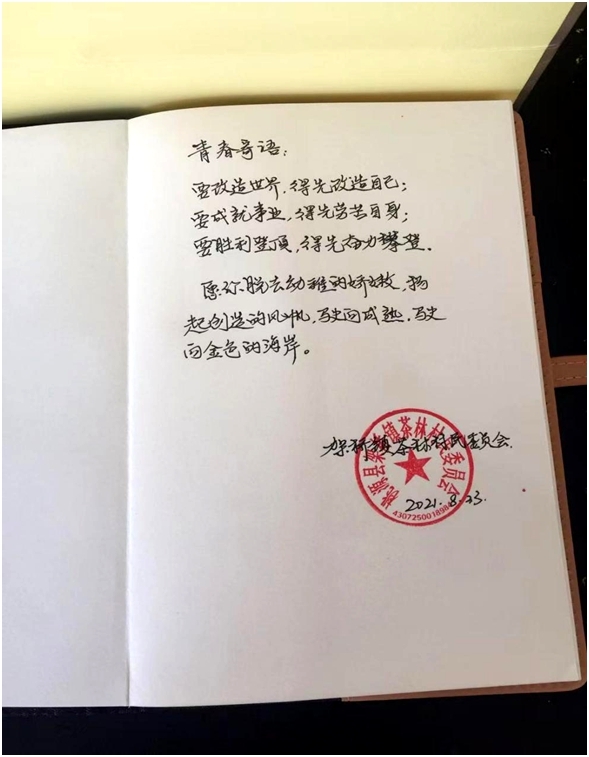 青春寄语：
要改造世界，得先改造自己；
要成就事业，得先劳苦自身；
要胜利登顶，得先奋力攀登．
愿你脱去幼稚的娇嫩，扬
起创造的风帆，驶向成熟．驶
向金色的海岸。
架桥镇茶林村民委员会
桃源县架桥镇茶林村民委员会
2021.8.23.
4307250018984